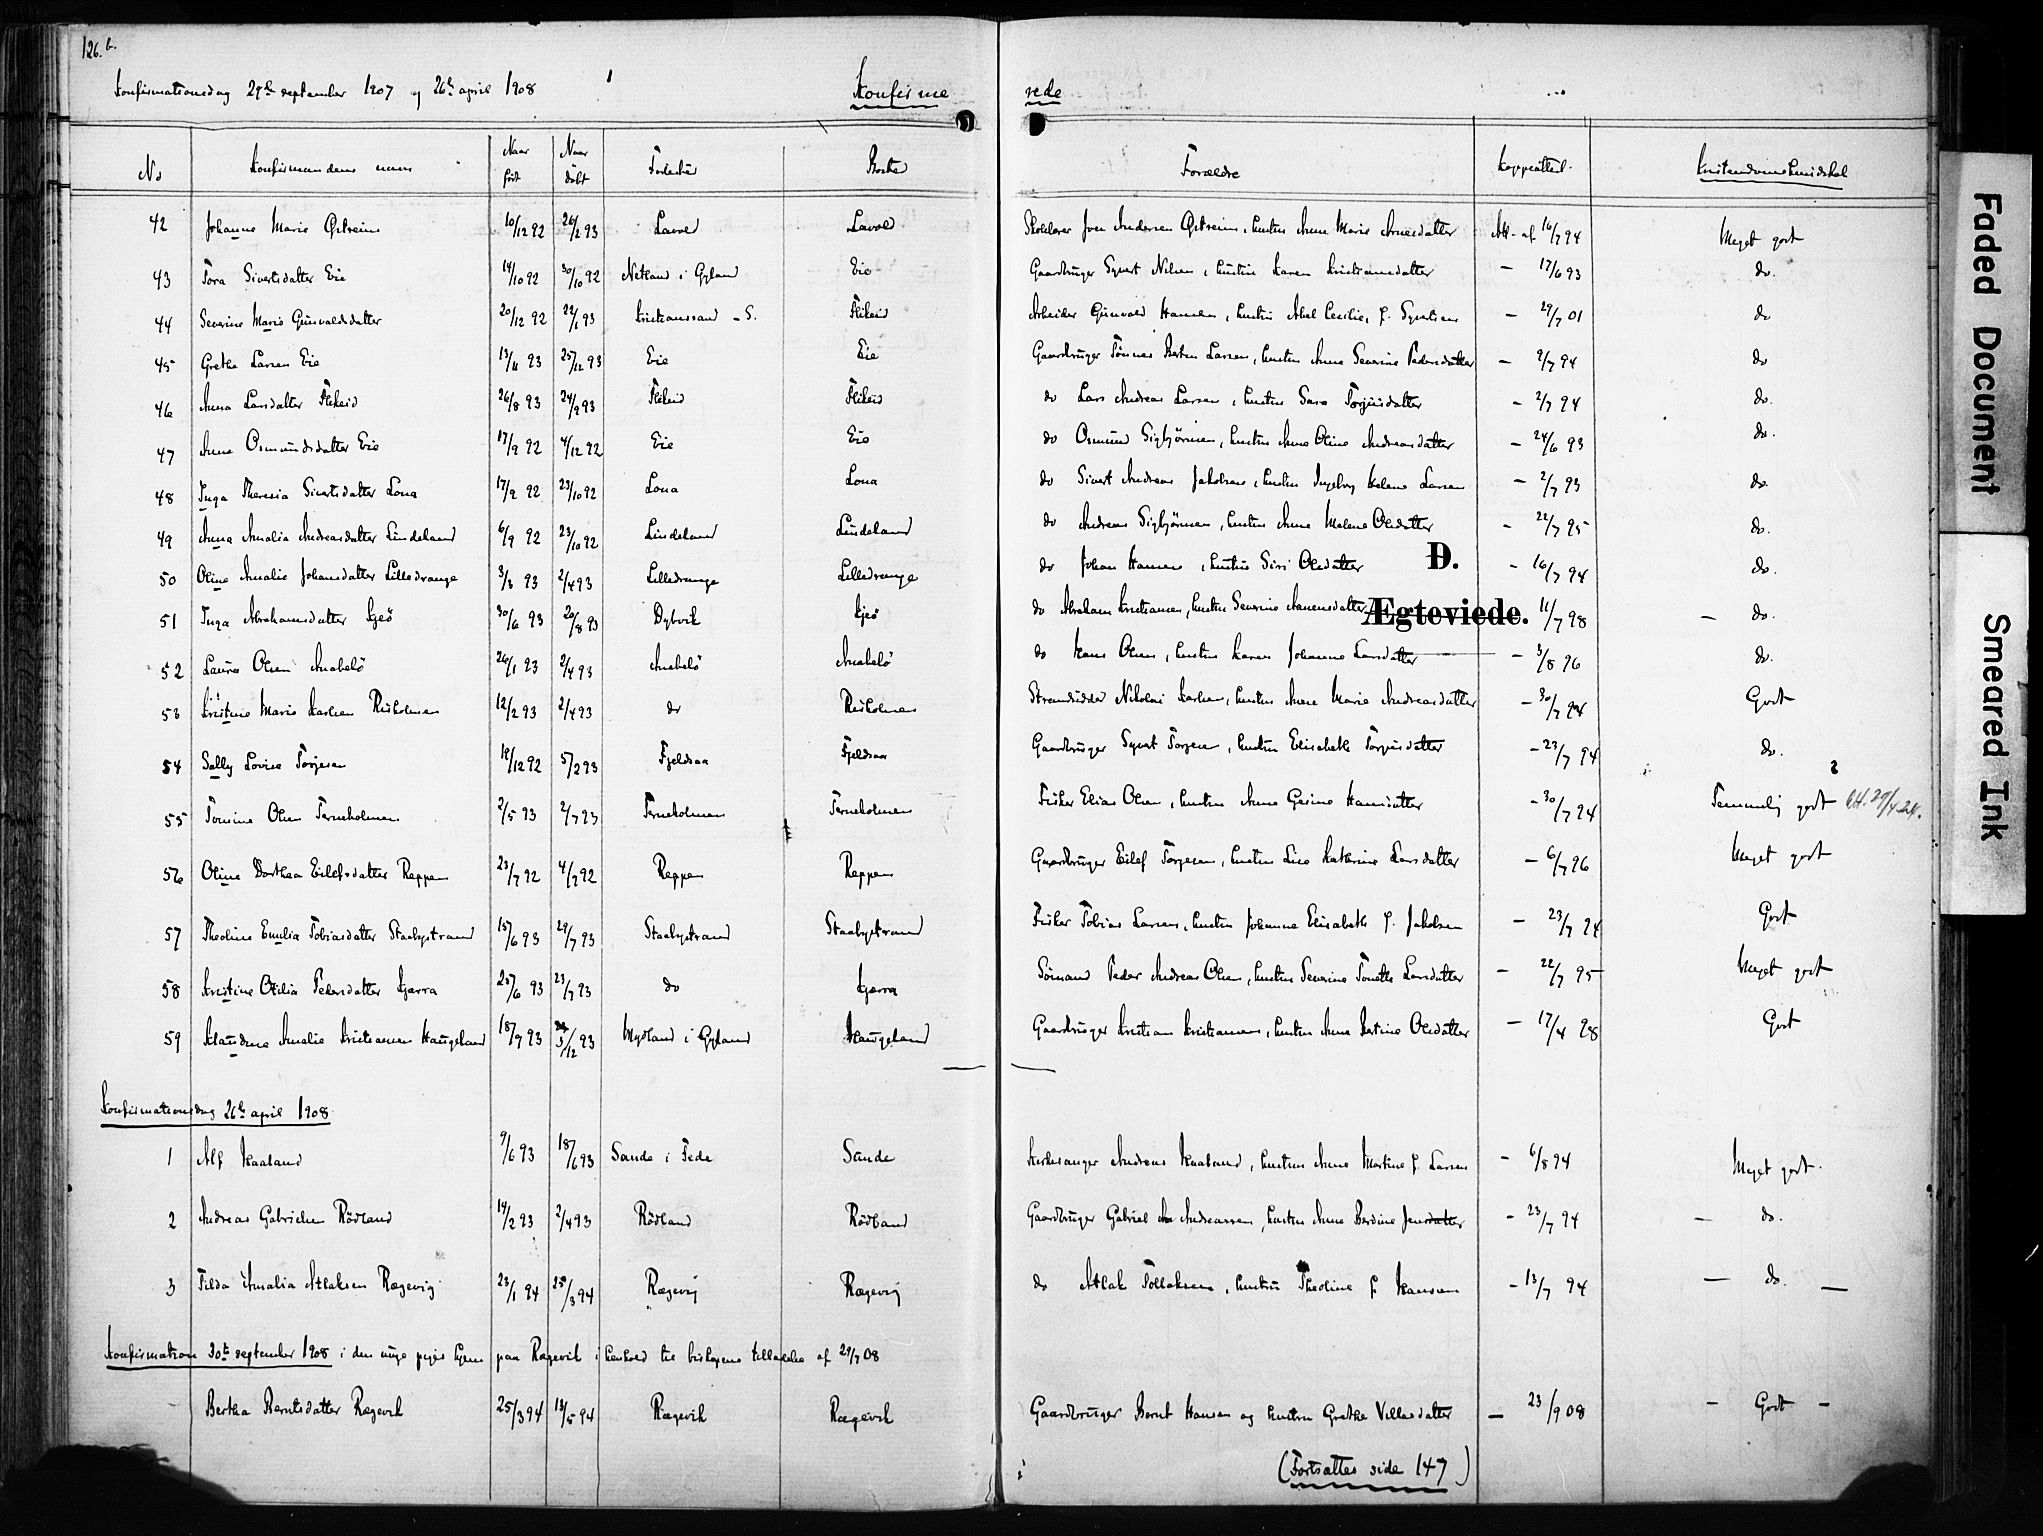 126.b.
Konfirmationsdag 29de september 1907 og 26de april 1908 Konfirme rede
No Konfirmandens navn Naar født Naar døbt Fødested Bosted Forældre Koppeattest. Kristendomskundskab
42 Johanne Marie Østreim 10/12 92 26/2 93 Lavold Lavold Skolelærer Joen Andersen Østreim, hustru Anne Marie Arnesdatter Att. af 16/7 94 Meget godt
43 Tora Sivertsdatter Eie 14/10 92 30/10 92 Netland i Gyland Eie Gaardbruger Syvert Nilsen, hustru Karen Kristiansdatter - 17/6 93 do.
44 Severine Marie Gunvaldsdatter 20/12 92 22/1 93 Kristianssand - S. Flikeid Arbeider Gunvald Hansen, hustru Abel Cecilie, f. Syvertsen - 29/7 01 do
45 Grethe Larsen Eie 13/11 93 25/12 93 Eie Eie Gaardbruger Tønnes Berten Larsen, hustru Anne Severine Pedersdatter - 2/7 94 do
46 Anna Larsdatter Flikeid 26/8 93 24/9 93 Flikeid Flikeid do Lars Andreas Larsen, hustru Sara Torjusdatter - 2/7 94 do.
47 Anne Osmundsdatter Eie 17/9 92 4/12 92 Eie Eie do Osmund Sigbjørnsen, hustru Anne Oline Andreasdatter - 24/6 93 do.
48 Inga Theresia Sivertsdatter Lona 17/9 92 23/10 92 Lona Lona do Sivert Andreas Jakobsen, hustru Ingeborg Helene Larsen - 2/7 93 do.
49 Anna Amalia Andreasdatter Lindeland 6/9 92 23/10 92 Lindeland Lindeland do Andreas Sigbjørnsen, hustru Anne Malene Olsdatter - 22/7 95 do.
50 Oline Amalie Johansdatter Lilledrange 3/3 93 2/4 93 Lilledrange Lilledrange do Johan Hansen, hustru Siri Olsdatter D. - 16/7 94 do.
51 Inga Abrahamsdatter Kjeø 30/6 93 20/8 93 Dybvik Kjeø do Abraham Kristiansen, hustru Severine Aanensdatter Ægteviede. 11/7 98 - do.
52 Laura Olsen Anabelø 26/1 93 2/4 93 Anabelø Anabelø do Hans Olsen, hustru Karen Johanne Larsdatter - 3/8 96 do.
53 Kristine Marie Karlsen Risholmen 12/2 93 2/4 93 do Risholmen Strandsidder Nikolai Karlsen, hustru Anne Marie Andreasdatter - 30/7 94 Godt
54 Sally Lovise Torjesen 19/12 92 5/2 93 Fjeldsaa Fjeldsaa Gaardbruger Syvert Torjesen, hustru Elisabeth Torjusdatter - 23/7 94 do.
55 Tomine Olsen Terneholmen 2/5 93 2/7 93 Terneholmen Terneholmen Fisker Elias Olsen, hustru Anne Gesine Hansdatter - 30/7 94 Temmelig godt
56 Oline Dorthea Eilefsdatter Reppen 23/7 92 4/9 92 Reppen Reppen Gaardbruger Eilef Torjesen, hustru Lise Katerine Larsdatter - 6/7 96 Meget godt
57 Theoline Emilia Tobiasdatter Staabystrand 15/6 93 29/7 93 Staabystrand Staabystrand Fisker Tobias Larsen, hustru Johanne Elisabeth f. Jakobsen - 23/7 94 Godt
58 Kristine Otilia Pedersdatter Kjerra 25/6 93 23/7 93 do Kjerra Sømand Peder Andreas Olsen, hustru Severine Tonette Larsdatter - 22/7 95 Meget godt
59 Klaudine Amalie Kristiansen Haugeland 18/9 93 3/12 93 Mydland i Gyland Haugeland Gaardbruger Kristian Kristiansen, hustru Anne Bertine Olsdatter - 17/4 98 Godt
Konfirmationsdag 26de april 1908
1 Alf Haaland 9/6 93 18/6 93 Sande i Fede Sande Kirkesanger Andreas Haaland, hustru Anne Martine f. Larsen - 6/8 94 Meget godt.
2 Andreas Gabrielsen Rødland 14/2 93 2/4 93 Rødland Rødland Gaardbruger Gabriel Andreassen, hustru Anne Berdine Jensdatter - 23/7 94 - do.
3 Tilda Amalia Atlaksen Rægevig 23/1 94 25/3 94 Rægevig Rægevig do Atlak Tollaksen, hustru Theoline f Hansen - 13/7 94 - do. -
Konfirmation 30te september 1908 i den unge piges hjem paa Rægevik i henhold til biskopens tilladelse af 29/7 08
Bertha Berntsdatter Rægevik 25/3 94 13/5 94 Rægevik Rægevik Gaardbruger Bernt Hansen og hustru Grethe Villasdatter - 23/9 08 - Godt -
(Fortsættes side 147)
Faded Document
Smeared Ink